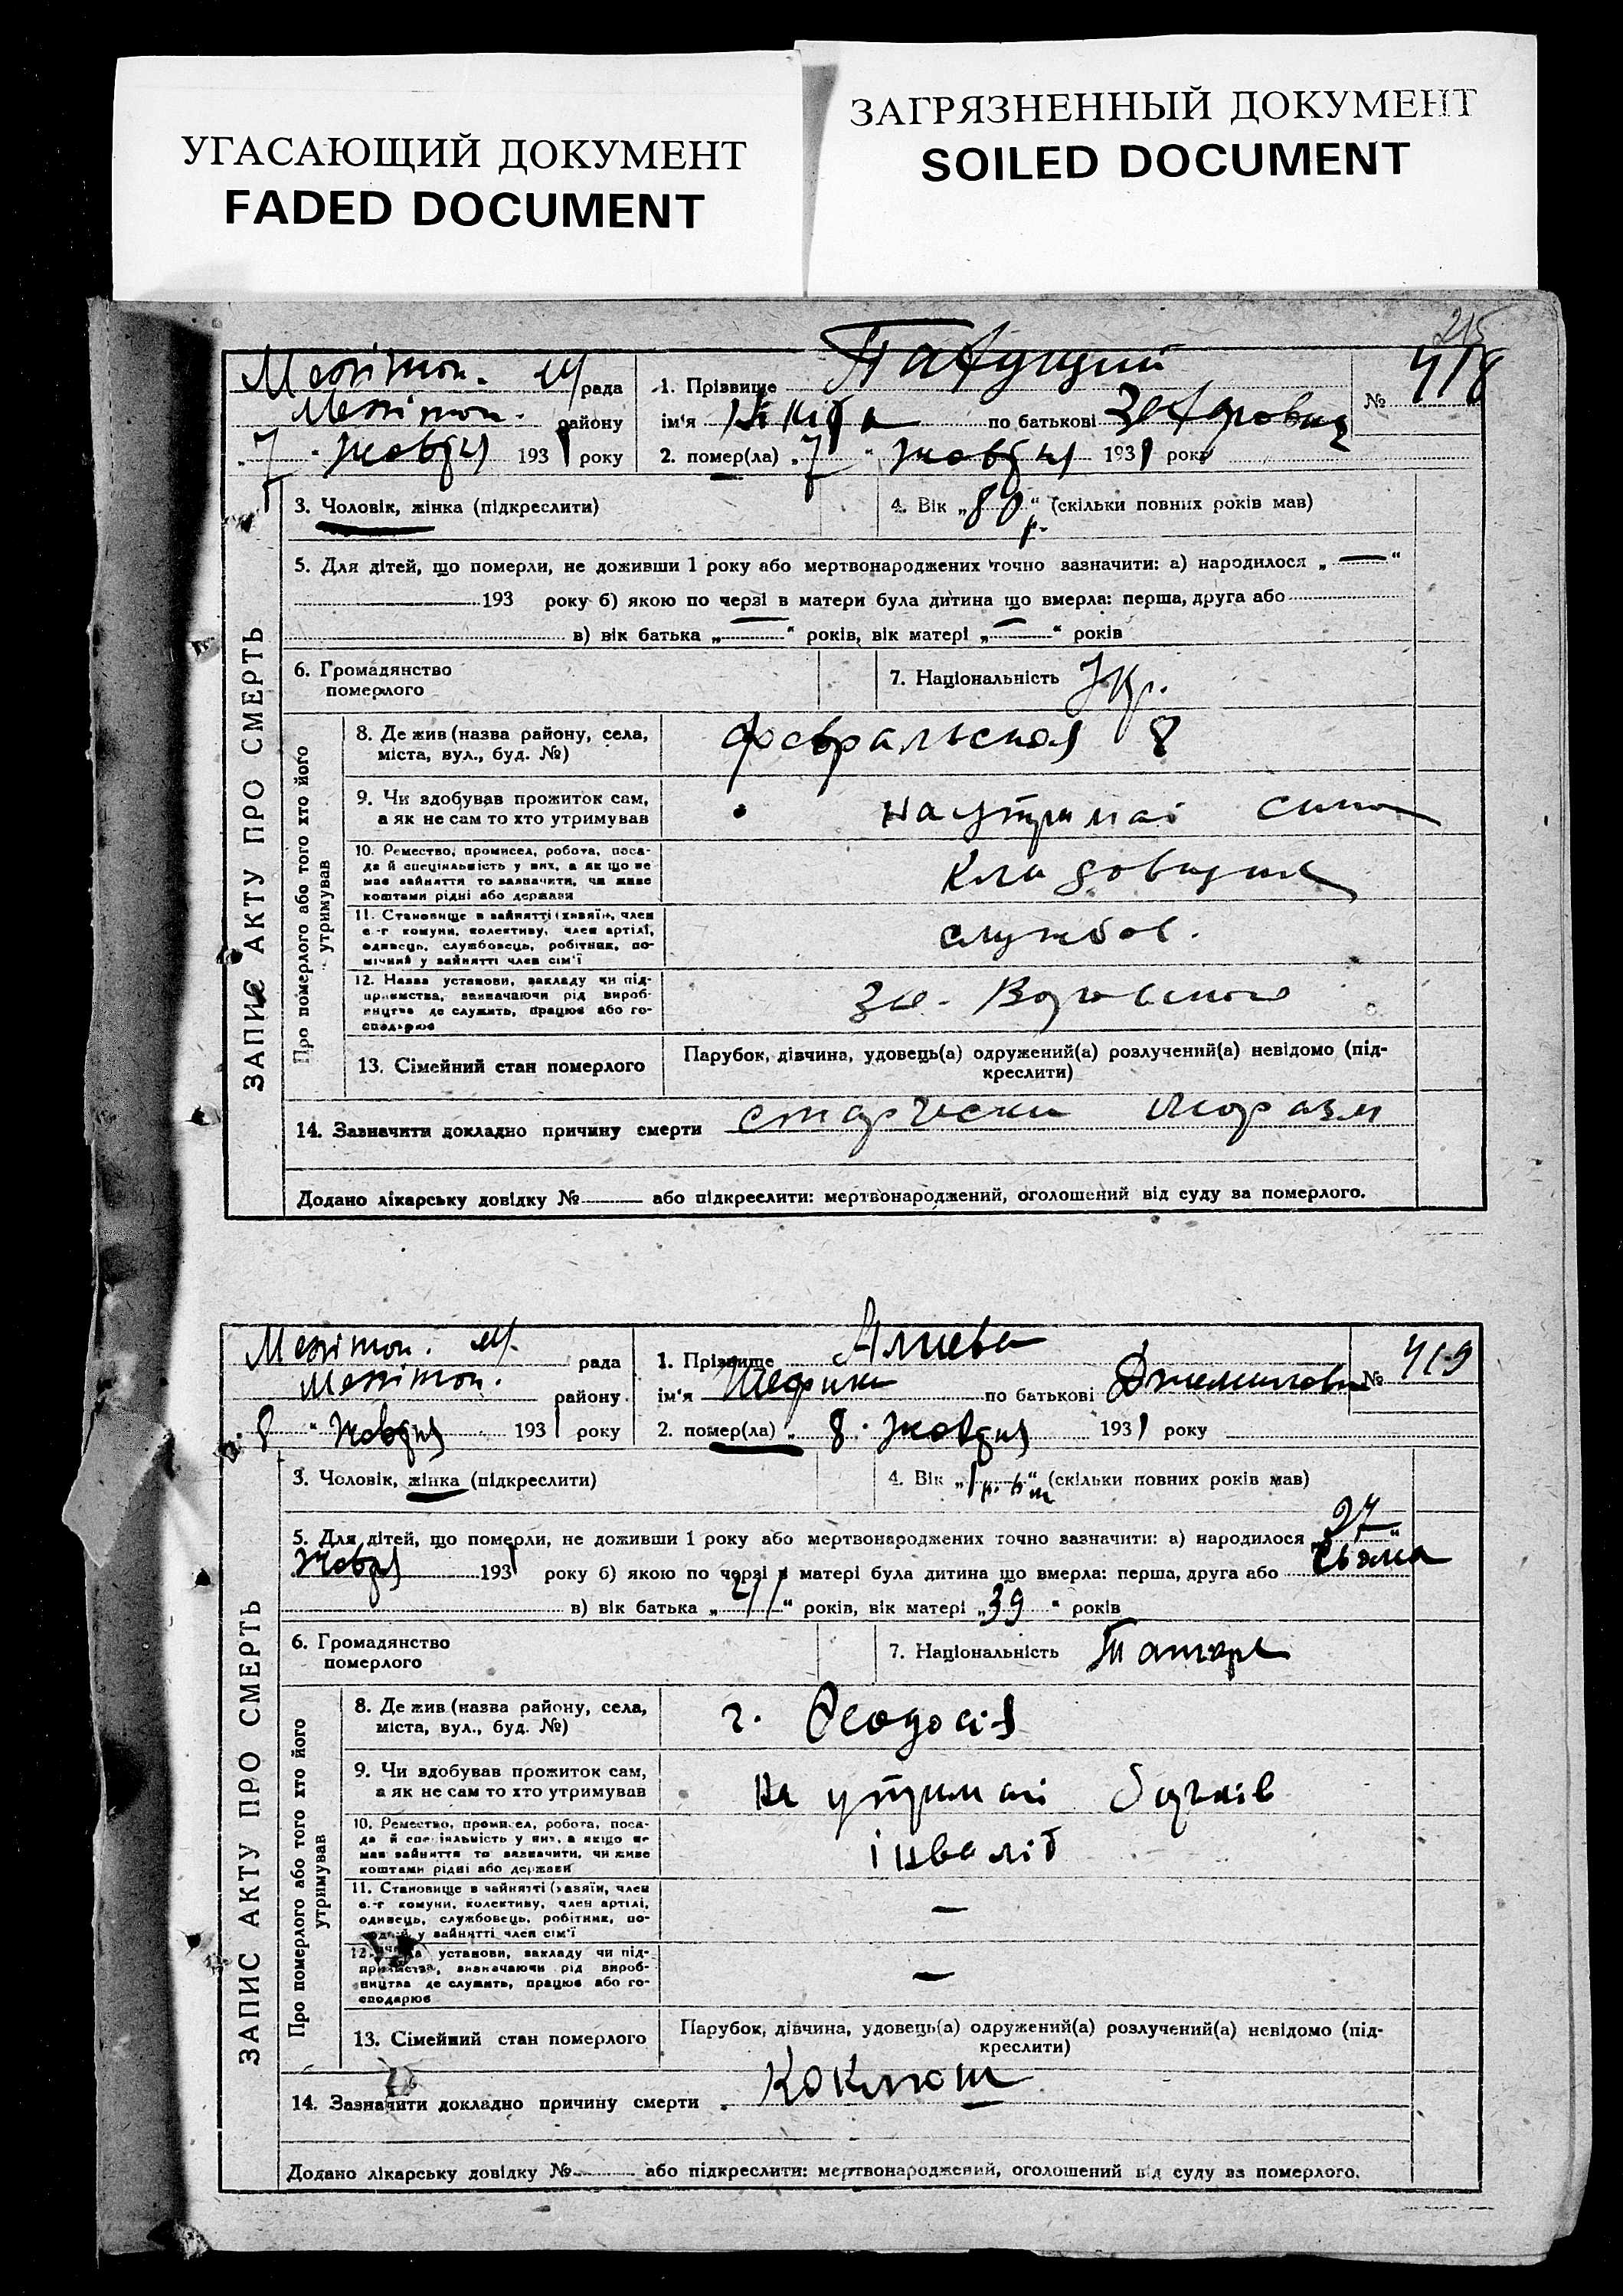 УГАСАЮЩИЙ ДОКУМЕНТ
FADED DOCUMENT
ЗАГРЯЗНЕННЫЙ ДОКУМЕНТ
SOILED DOCUMENT
215
рада
району
„7" жовтня 1931 року
1. Прізвище
ім'я по батькові
2. помер(ла) „7" жовтня 1931 року
№ 418
ЗАПИС АКТУ ПРО СМЕРТЬ
3. Чоловік, жінка (підкреслити)
4. Вік „80" р. (скільки повних років мав)
5. Для дітей, що померли, не доживши 1 року або мертвонароджених точно зазначити: а) народилося „—"
193 року б) якою по черзі в матери була дитина що вмерла: перша, друга або
в) вік батька „—" років, вік матері „—" років
6. Громадянство
померлого
7. Національність Укр.
Про померлого або того хто його
утримував
8. Де жив (назва району, села,
міста, вул., буд. №)
Февральская 8
9. Чи здобував прожиток сам,
а як не сам то хто утримував
на утримані сина
10. Ремество, промисел, робота, поса-
да й спеціяльність у них, а як що не
має зайняття то зазначити, чи живе
коштами рідні або держави
Кладовщик
11. Становище в зайнятті (хазяїн, член
с.-г комуни, колективу, член артілі,
одинець, службовець, робітник, по-
мічний у зайнятті член сім'ї
службов.
12. Назва установи, закладу чи під-
приємства, зазначаючи рід вироб-
ництва де служить, працює або го-
сподарює
13. Сімейний стан померлого
Парубок, дівчина, удовець(а) одружений(а) розлучений(а) невідомо (під-
креслити)
14. Зазначити докладно причину смерти старчески маразм
Додано лікарську довідку № або підкреслити: мертвонароджений, оголошений від суду за померлого.
рада
району
8 " жовтня 1931 року
1. Прізвище Алиева
ім'я Шефика по батькові Джемиловна
2. помер(ла) „ 8 " жовтня 1931 року
№ 419
ЗАПИС АКТУ ПРО СМЕРТЬ
3. Чоловік, жінка (підкреслити)
4. Вік (скільки повних років мав)
5. Для дітей, що померли, не доживши 1 року або мертвонароджених точно зазначити: а) народилося 27"
193 року б) якою по черзі в матері була дитина що вмерла: перша, друга або сьома
в) вік батька років, вік матері „39" років
6. Громадянство
померлого
7. Національність Татарк
Про померлого або того хто його
утримував
8. Де жив (назва району, села,
міста, вул., буд. №)
г. Феодосія
9. Чи здобував прожиток сам,
а як не сам то хто утримував
на утримані батьків
10. Ремество, промисел, робота, поса-
да й спеціяльність у них, а якщо не
має зайняття то зазначити, чи живе
коштами рідні або держави
інвалід
11. Становище в зайнятті (хазяїн, член
с.-г комуни, колективу, член артілі,
одинець, службовець, робітник, по-
у зайнятті член сім'ї
—
12. установи, закладу чи під-
приємства, зазначаючи рід вироб-
ництва де служить, працює або го-
сподарює
—
13. Сімейний стан померлого
Парубок, дівчина, удовець(а) одружений(а) розлучений(а) невідомо (під-
креслити)
14. Зазначити докладно причину смерти Коклюш
Додано лікарську довідку № або підкреслити: мертвонароджений, оголошений від суду за померлого.